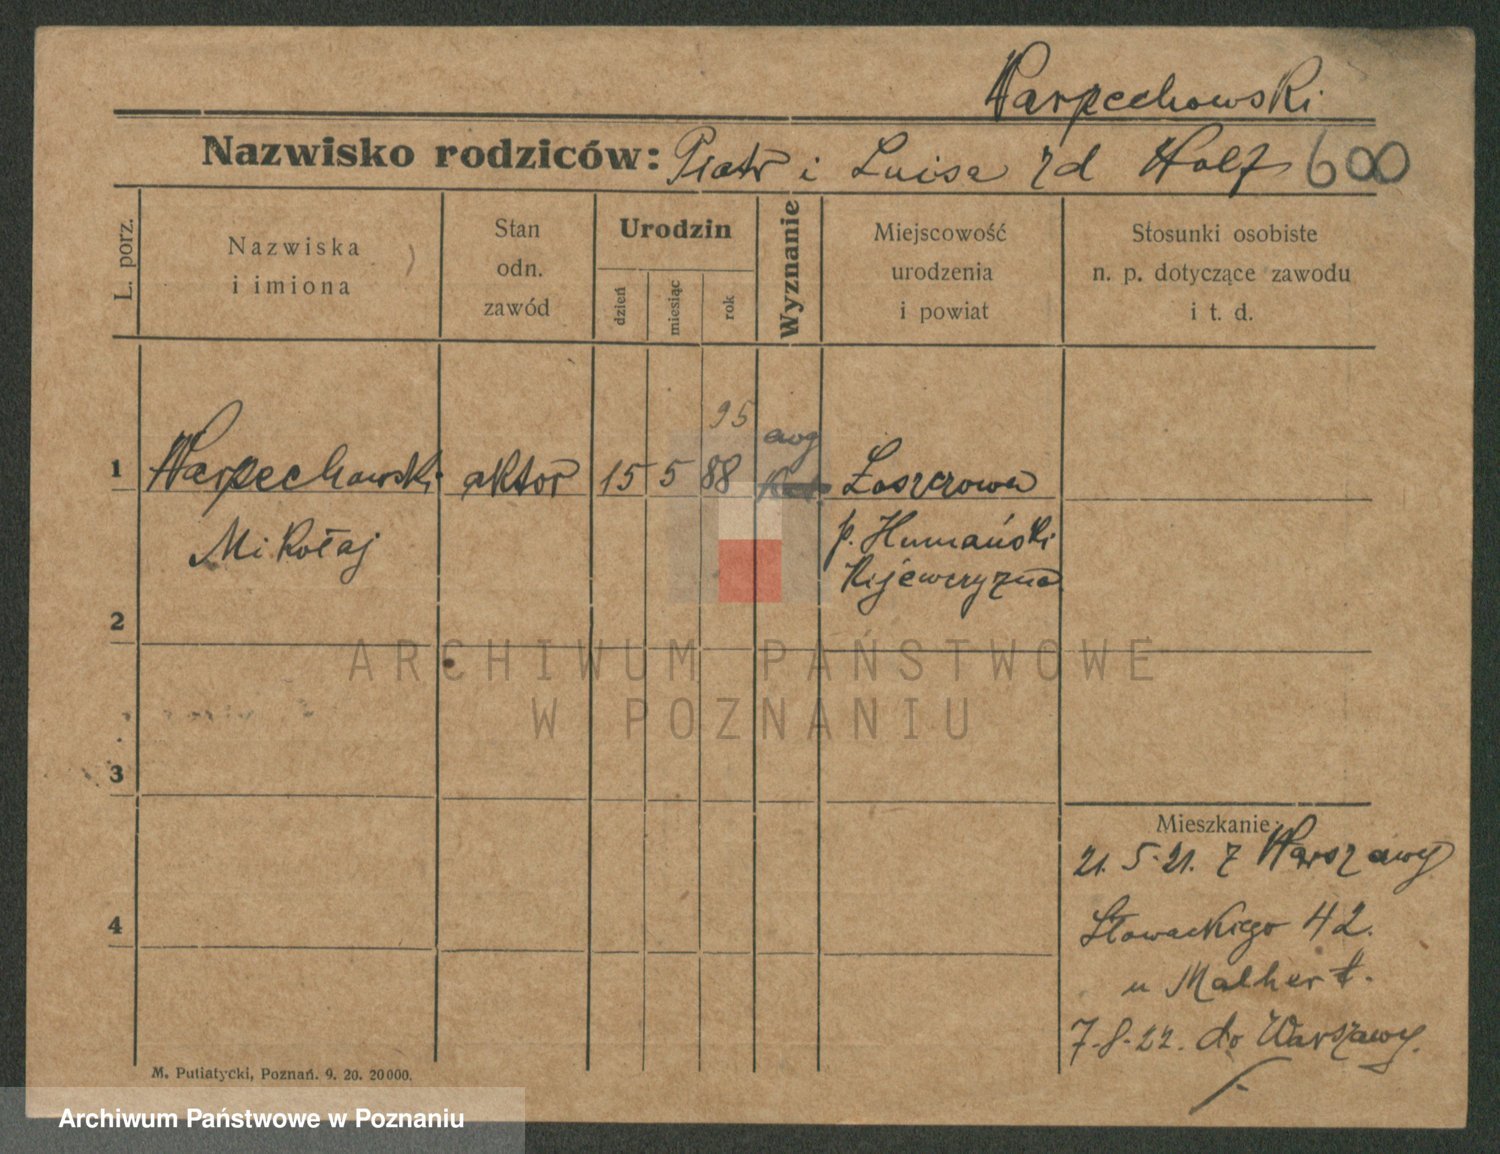 Warpechowski
Nazwisko rodziców: Piotr i Luisa zd Holf 600
L. porz.
Nazwiska
i imiona
Stan
odn.
zawód
Urodzin
dzień
miesiąc
rok
Wyznanie
Miejscowość
urodzenia
i powiat
Stosunki osobiste
n. p. dotyczące zawodu
i t. d.
95
1 Warpechowski aktor 15 5 88 Łoszczowa
Mikołaj
p. Humański
Kijewczyzna
2
ARCHIWUM PAŃSTWOWE
W POZNANIU
3
Mieszkanie:
21.5.21. z Warszawy
4
Słowackiego 42.
u Malhert.
7.8.22. do Warszawy.
M. Putiatycki, Poznań. 9. 20. 20000.
Archiwum Państwowe w Poznaniu